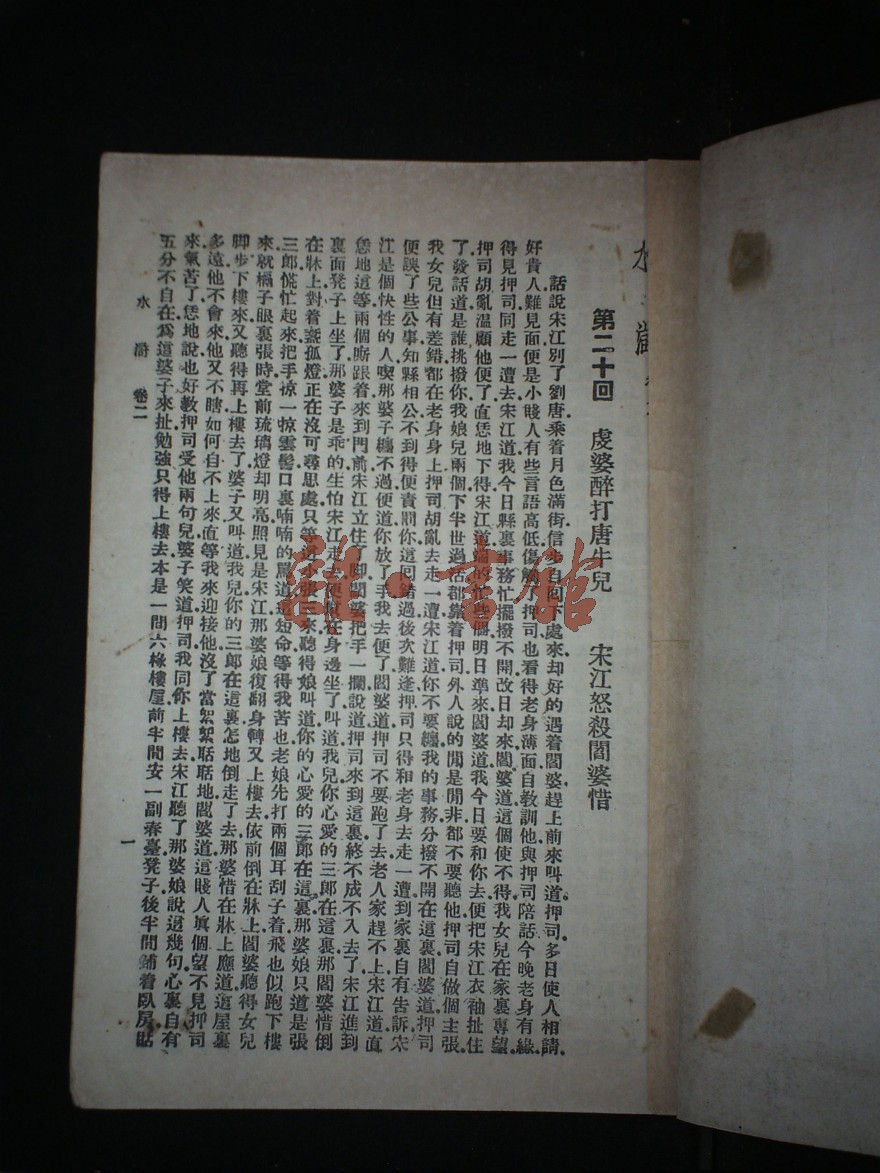 第二十回　虔婆醉打唐牛兒　宋江怒殺閻婆惜
話說宋江別了劉唐乘着月色滿街信步自囘下處來.却好的遇着閻婆趕上前來叫道押司.多日使人相請.
好貴人難見面便是小賤人有些言語高低傷觸了押司也看得老身薄面自教訓他與押司陪話今晚老身有緣.
得見押司同走一遭去宋江道我今日縣裏事務忙擺撥不開改日却來閻婆道這個使不得.我女兒在家裏專望.
押司胡亂溫顧他便了.直恁地下得宋江道端的忙些個明日準來閻婆道我今日要和你去便把宋江衣袖扯住
了.發話道是誰挑撥你我娘兒兩個下半世過活都靠着押司外人說的閒是閒非都不要聽他押司自做個主張.
我女兒但有差錯都在老身身上押司胡亂去走一遭宋江道你不要纏我的事務分撥不開在這裏閻婆道押司
便誤了些公事知縣相公不到得便責罰你這囘錯過後次難逢押司只得和老身去走一遭到家裏自有告訴宋
江是個快性的人喫那婆子纏不過便道你放了手我去便了閻婆道押司不要跑了去老人家趕不上宋江道直
恁地這等兩個廝跟着來到門前宋江立住了脚閻婆把手一攔說道押司來到這裏終不成不入去了宋江進到
裏面凳子上坐了那婆子是乖的生怕宋江走去便幫在身邊坐了叫道我兒你心愛的三郎在這裏那閻婆惜倒
在牀上對着盞孤燈正在沒可尋思處只等這小張三來聽得娘叫道你的心愛的三郎在這裏那婆娘只道是張
三郎慌忙起來把手掠一掠雲髻口裏喃喃的罵道這短命等得我苦也老娘先打兩個耳刮子着飛也似跑下樓
來.就槅子眼裏張時堂前琉璃燈却明亮照見是宋江那婆娘復翻身轉又上樓去依前倒在牀上閻婆聽得女兒
脚步下樓來又聽得再上樓去了婆子又叫道我兒你的三郎在這裏怎地倒走了去那婆惜在牀上應道這屋裏
多遠他不會來他又不瞎如何自不上來直等我來迎接他沒了當絮絮聒聒地閻婆道這賤人眞個望不見押司
來.氣苦了恁地說也好教押司受他兩句兒婆子笑道押司我同你上樓去宋江聽了那婆娘說這幾句心裏自有
五分不自在爲這婆子來扯勉強只得上樓去本是一間六椽樓屋前半間安一副春臺凳子後半間鋪着臥房貼
水滸　卷二　一
雜·書館